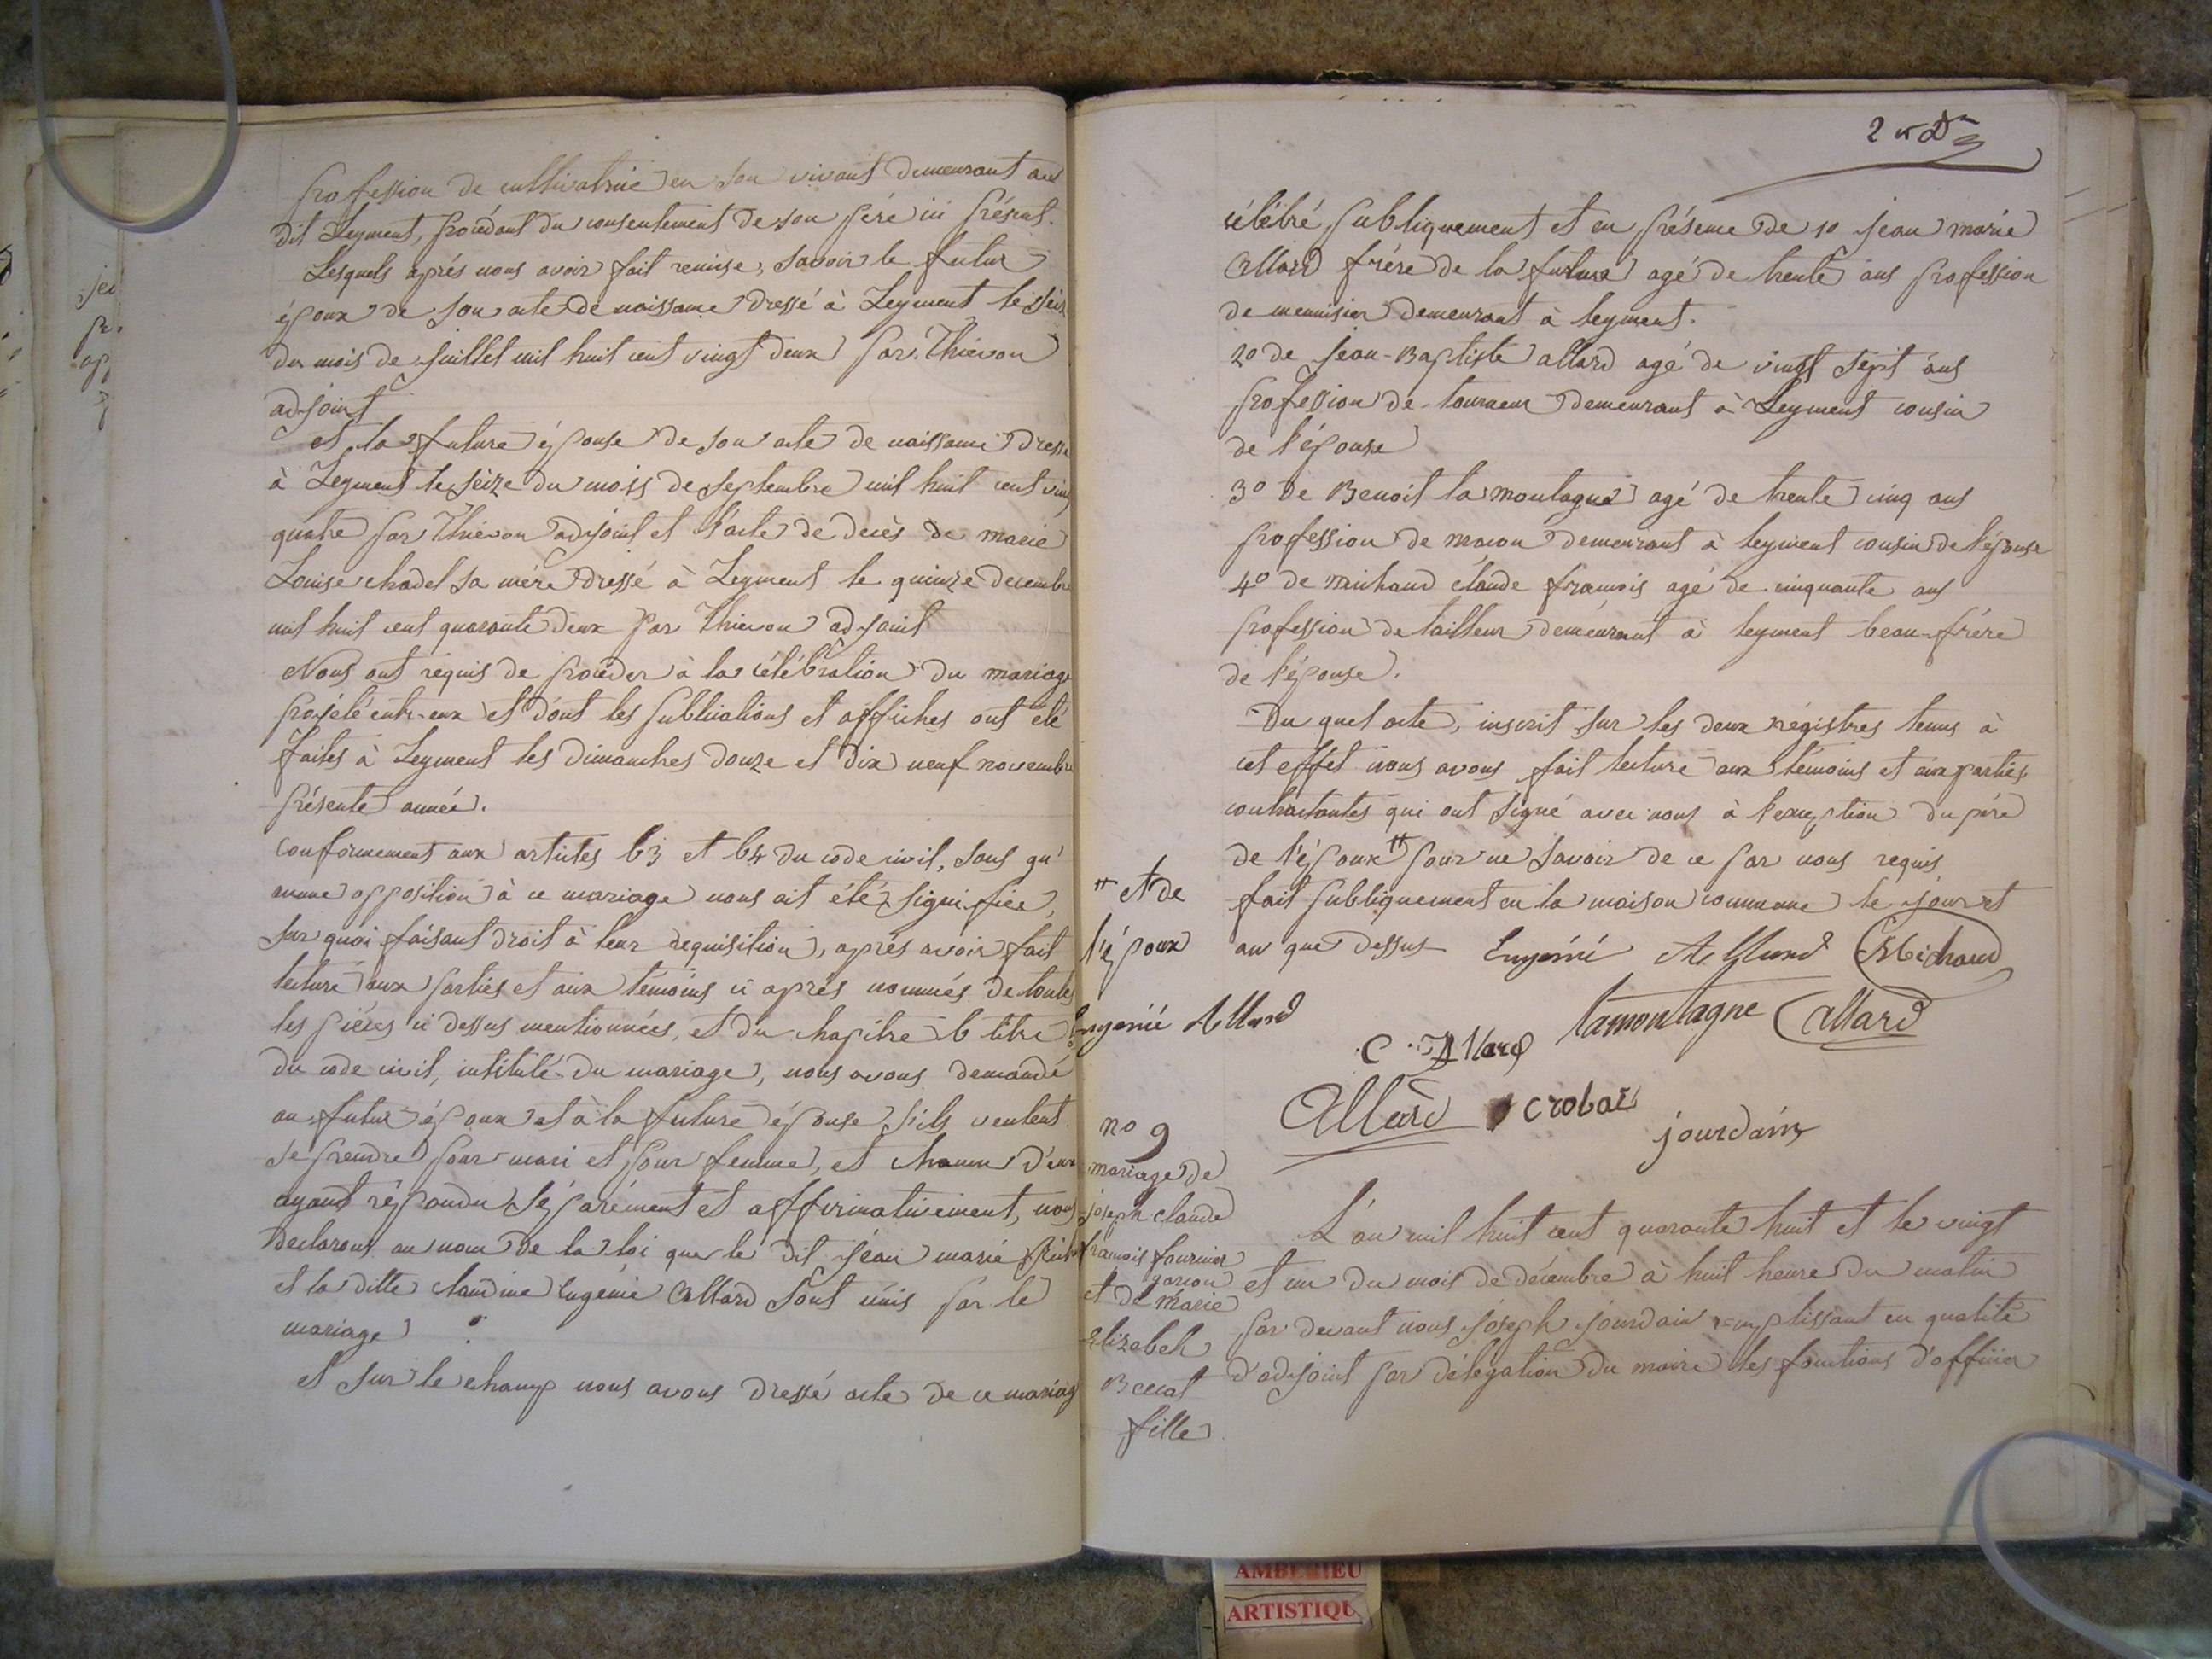 profession de cultivatrice en son vivant demeurant au
dit Leyment, procédant du consentement de son père ici présent.
Lesquels après nous avoir fait remise, savoir le futur
époux de son acte de naissance dressé à Leyment le seize
du mois de juillet mil huit cent vingt deux par Thievon
adjoint
et la future épouse de son acte de naissance dressé
à Leyment le seize du mois de septembre mil huit cent vingt
quatre par Thievon adjoint et l'acte de decès de marie
Louise chadel sa mère dressé à Leyment le quinze decembre
mil huit cent quarante deux par Thievon adjoint
Nous ont requis de procéder à la célébration du mariage
projété entr-eux et dont les publications et affiches ont été
faites à Leyment les dimanches douze et dix neuf novembre
présente année.
conformement aux articles 63 et 64 du code civil, sans qu'
aucune opposition à ce mariage nous ait été signifiée,
sur quoi faisant droit à leur requisition, après avoir fait
lecture aux parties et aux témoins ci après nommés de toutes
les pièces ci dessus mentionnées, et du chapitre 6 titre
du code civil, intitulé du mariage, nous avons demandé
au futur époux et à la future épouse s'ils veulent
se prendre pour mari et pour femme, et chacun d'eux
ayant répondu séparément et affirmativement, nous
declarons au nom de la loi que le dit jean marie
et la ditte claudine Eugénie Allard sont unis par le
mariage
et sur le champ nous avons dressé acte de ce mariage
célébré publiquement et en présence de 1o jean marie
Allard frère de la future agé de trente ans profession
de menuisier demeurant à leyment.
2o de jean-Baptiste allard agé de vingt sept ans
profession de tourneur demeurant à Leyment cousin
de l'épouse
3o de Benoit lamontagne agé de trente cinq ans
profession de macon demeurant à leyment cousin de l'épouse
4o de michaud claude francois agé de cinquante ans
profession de tailleur demeurant à leyment beau-frère
de l'épouse.
Du quel acte, inscrit sur les deux régistres tenus à
cet effet nous avons fait lecture aux témoins et aux parties
contractantes qui ont signé avec nous à l'exception du père
de l'époux # pour ne savoir de ce par nous requis
fait publiquement en la maison commune le jour et
an que dessus Eugénie Allard Michaud
# et de
l'époux
Eugenie Allard
lamontagne Allard
C. Allard
Allard crolat
jourdain
no 9
mariage de
joseph claude
francois fournier
garcon
et de marie
Elizabeh
fille
L'an mil huit cent quarante huit et le vingt
et un du mois de décembre à huit heure du matin
par devant nous joseph jourdain remplissant en qualité
d'adjoint par délégation du maire les fonctions d'officier
AMBERIEU
ARTISTIQU